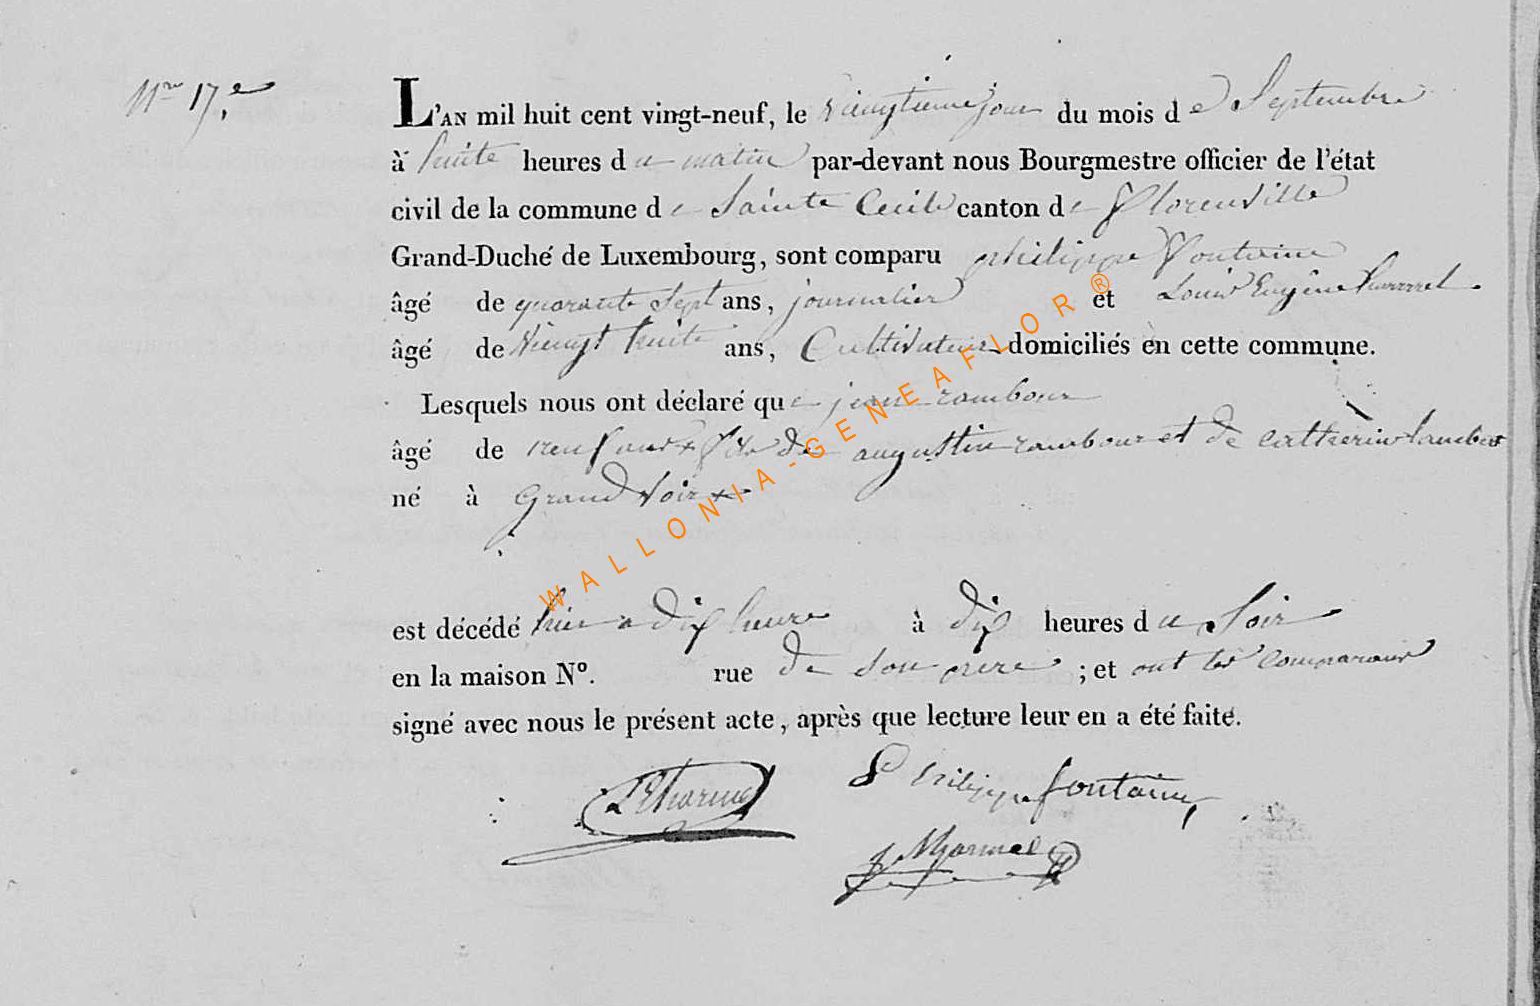 Nro 17.e
L'AN mil huit cent vingt-neuf, le vieingtieme jour du mois de Septembre
à huite heures du matin par-devant nous Bourgmestre officier de l'état
civil de la commune de Sainte Cecile canton de florenville
Grand-Duché de Luxembourg, sont comparu philippe fontaine
âgé de quarante Sept ans, journalier et Louis Eugêne
âgé de vieingt huite ans, Cultivateur domiciliés en cette commune.
Lesquels nous ont déclaré que jean rambour
âgé de neuf ans fils de augustin rambour et de catherine lambert
né à Grand Voir
est décédé hier a dix heure à dix heures du Soir
en la maison No. rue de son pere ; et ont les comparans
signé avec nous le présent acte, après que lecture leur en a été faite.
Philippe fontaine
WALLONIA-GENEAFLOR®